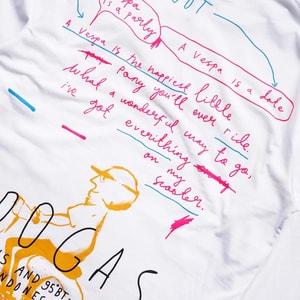 OUT
Vespa
is a party
A Vespa is a date
A Vespa is the happiest little
pony you'll ever ride,
What a wonderful way to go,
i've got everything
on my
scooter.
DOGAS
AND 95° BT
NDONES